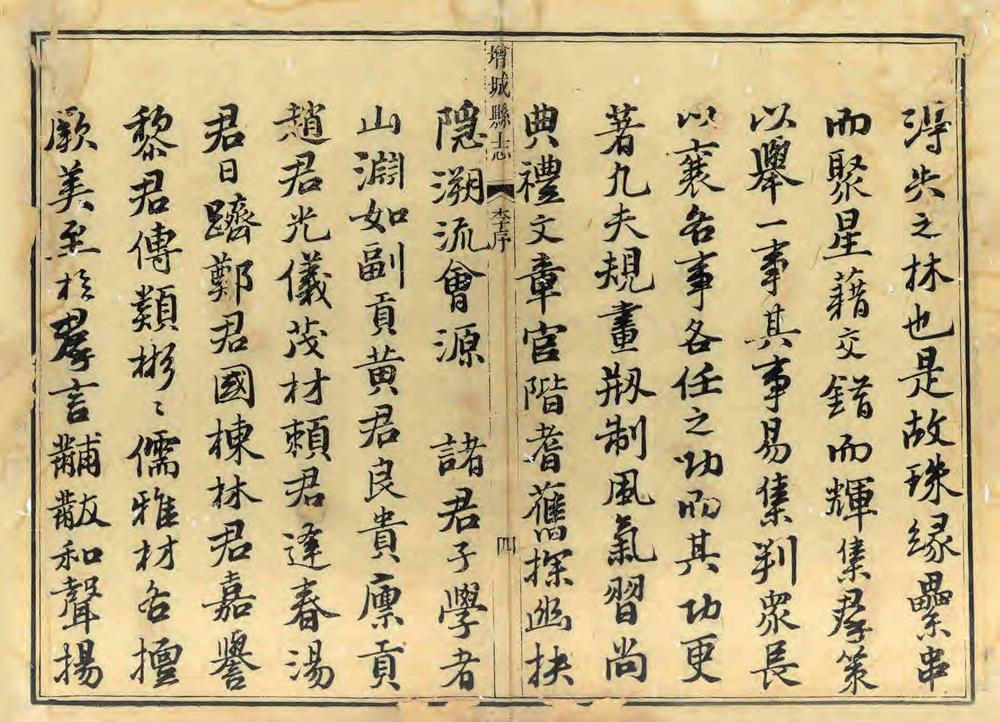 得失之林也是故珠緣纍串
而聚星藉交錯而輝集羣策
以舉一事其事易集判眾長
以襄各事各任之功而其功更
著凡夫規畫剏制風氣習尚
典禮文章官階耆舊探幽抉
增城縣志 李序 四
隱溯流會源 諸君子學者
山淵如副貢黃君良貴廩貢
趙君光儀茂材賴君逢春湯
君日躋鄭君國棟林君嘉譽
黎君傳類彬〻儒雅材各擅
厥美至於羣言黼黻和聲揚